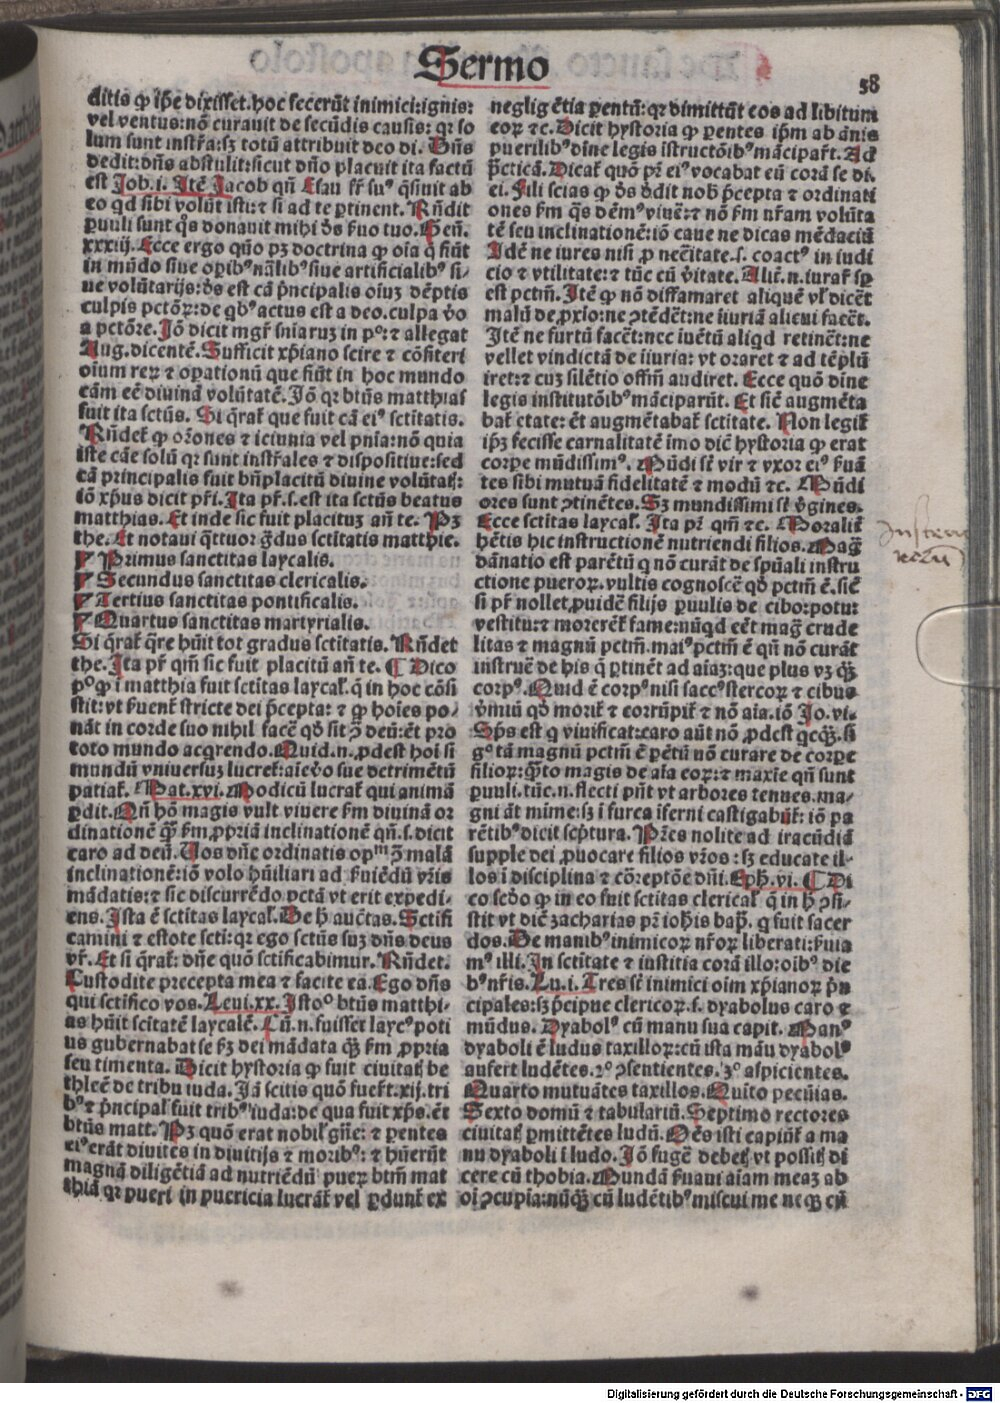 Sermo
58
ditis ꝙ ip̄e dixisset. hoc fecerūt inimici: ignis:
vel ventus: nō curauit de secūdis causis: qꝛ so
lum sunt instr̄a: sꝫ totū attribuit deo di. Dn̄s
dedit: dn̄s abstulit: sicut dn̄o placuit ita factū
est Job. i. Itē Jacob qn̄ Esau fr̄ suꝰ q̄siuit ab
eo qd sibi volūt isti: ⁊ si ad te ꝑtinent. Rn̄dit
ꝑuuli sunt qͦs donauit mihi dꝰs ẜuo tuo. Gen̄.
xxxiij. Ecce ergo quō pꝫ doctrina ꝙ oīa q̄ fiūt
in mūdo siue oꝑibꝰ nālibꝰ siue artificialibꝰ si⸗
ue volūtarijs: dꝰs est cā pͥncipalis oīuꝫ dēptis
culpis pctōꝝ: de qͥbꝰ actus est a deo. culpa ꝟo
a pctōre. Jō dicit mgr̄ sniaruꝫ in pͦ: ⁊ allegat
Aug. dicentē. Sufficit xp̄iano scire ⁊ cōfiteri
oīum reꝝ ⁊ oꝑationū que fiūt in hoc mundo
cām eē diuinā volūtatē. Jō qꝛ btūs matthias
fuit ita sctūs. Si q̄raꝭ que fuit cā eiꝰ sctītatis.
Rn̄deꝭ ꝙ or̄ones ⁊ ieiunia vel pnīa: nō quia
iste cāe solū qꝛ sunt instr̄ales ⁊ dispositiue: sed
cā principalis fuit bn̄placitū diuine volūtatꝭ:
iō xp̄us dicit pr̄i. Ita pr̄. s. est ita sctūs beatus
matthias. Et inde sic fuit placituꝫ an̄ te. Pꝫ
the. Et notaui q̄ttuoꝛ gͣdus sctītatis matthie.
¶ Primus sanctitas laycalis.
¶ Secundus sanctitas clericalis.
¶ Tertius sanctitas pontificalis.
¶ Quartus sanctitas martyrialis.
Si q̄raꝭ q̄re hūit tot gradus sctītatis. Rn̄det
the. Ita pr̄ qm̄ sic fuit placitū an̄ te. ¶ Dico
pͦ ꝙ i matthia fuit sctītas laycaꝉ. q̄ in hoc cōsi
stit: vt ẜuenꝭ stricte dei p̄cepta: ⁊ ꝙ hoīes po⸗
nāt in corde suo nihil facē qd̄ sit ꝯͣ deū: ēt pro
toto mundo acqrendo. Quid. n. ꝓdest hoī si
mundū vniuersuꝫ lucreꝭ: aīe ꝟo sue detrimētū
patiaꝭ. Mat. xvi. Modicū lucraꝭ qui animā
ꝑdit. Qn̄ hō magis vult viuere ẜm diuinā or
dinationē qͣꝫ ẜm ꝓpriā inclinationē qn̄. s. dicit
caro ad deū. Uos dn̄e ordinatis opᵐ ꝯͣ malā
inclinationē: iō volo hūiliari ad ẜuiēdū vr̄is
mādatis: ⁊ sic discurrēdo ꝑctā vt erit expedi⸗
ens. Ista ē sctītas laycaꝉ. De hͦ auctītas. Sctīfi
camini ⁊ estote scti: qꝛ ego sctūs suꝫ dn̄s deus
vr̄. Et si q̄raꝭ: dn̄e quō sctīficabimur. Rn̄det.
Custodite precepta mea ⁊ facite ea. Ego dn̄s
qui sctīfico vos. Leui. xx. Istoͦ btūs matthi⸗
as hūit sctītatē laycalē. Cū. n. fuisset laycꝰ poti
us gubernabat se ẜm dei mādata qͣꝫ ẜm ꝓpria
seu timenta. Dicit hystoria ꝙ fuit ciuitatꝭ be
thleē de tribu iuda. Jā scitis quō fueꝭt. xij. tri
bꝰ ⁊ pͥncipaꝉ fuit tribꝰ iuda: de qua fuit xp̄s. ēt
btūs matt. Pꝫ quō erat nobilꝭ gn̄e: ⁊ ꝑentes
eiꝰ erāt diuites in diuitijs ⁊ moribꝰ: ⁊ hūerūt
magnā diligētiā ad nutriēdū pueꝝ btm̄ mat
thiā qꝛ pueri in puericia lucrāꝭ vel ꝑdunꝭ ex
neglig ētia ꝑentū: qꝛ dimittūt eos ad libitum
eoꝝ ⁊c. Dicit hystoria ꝙ ꝑentes ip̄m ab ānis
puerilibꝰ dīne legis īstructōibꝰ mācipaꝭt. Ad
p̄cticā. Dicaꝭ quō pr̄ eiꝰ vocabat eū corā se di.
ei. Fili scias ꝙ dꝰs dedit nob̄ p̄cepta ⁊ ordinati
ones ẜm qͣs dēmꝰ viuē: ⁊ nō ẜm nr̄am volūta
tē seu inclinationē: iō caue ne dicas mēdaciū
Idē ne iures nisi ꝓ neccītate. s. coactꝰ in iudi
cio ⁊ vtilitate: ⁊ tūc cū ꝟitate. Alit̄. n. iuraꝭ sꝑ
est pctm̄. Itē ꝙ nō diffamaret aliquē vꝉ dicēt
malū de ꝓxīo: ne ꝯtēdēt: ne iiuriā alicui facēt.
Itē ne furtū facēt: nec iuētū aliqd retinēt: ne
vellet vindictā de iiuria: vt oraret ⁊ ad tēplū
iret: ⁊ cuꝫ silētio offm̄ audiret. Ecce quō dīne
legis institutōibꝰ mācipaꝭūt. Et sic̄ augmēta
baꝭ etate: ēt augmētabaꝭ sctītate. Non legiꝭ
ip̄ꝫ fecisse carnalitatē īmo dic̄ hystoria ꝙ erat
corpe mūdissimꝰ. Mūdi sꝭ vir ⁊ vxor eiꝰ ẜuā
tes sibi mutuā fidelitatē ⁊ modū ⁊c. Mūdi
ores sunt ꝯtinētes. Sꝫ mundissimi sꝭ ꝟgines.
Ecce sctītas laycaꝉ. Ita pr̄ qm̄ ⁊c. Moraliꝭ
hētis hic instructionē nutriendi filios. Maḡ
dānatio est parētū q nō curāt de spūali instru
ctione pueroꝝ. vultis cognoscē qd̄ pctm̄ ē. sic̄
si pr̄ nollet ꝓuidē filijs ꝑuulis de cibo: potu:
vestitu: ⁊ morerēꝭ fame: nūqd eēt maḡ crude
litas ⁊ magnū pctm̄. maiꝰ pctm̄ ē qn̄ nō curāt
instruē de his q̄ ꝑtinēt ad aīaꝫ: que plus vꝫ qͣꝫ
corpꝰ. Quid ē corpꝰ nisi saccꝰ stercoꝝ ⁊ cibus
ꝟmiū qd̄ moriꝭ ⁊ corrūpiꝭ ⁊ nō aīa. iō Jo. vi.
Spūs est q viuificat: caro aūt nō ꝓdest qcqͣꝫ. si
gͦ tā magnū pctm̄ ē ꝑētū nō curare de corpe
filioꝝ: qͣto magis de aīa eoꝝ: ⁊ maxīe qn̄ sunt
ꝑuuli. tūc. n. flecti pn̄t vt arbores tenues. ma⸗
gni āt mīme: sꝫ i furca īferni castigabūꝭ: iō pa
rētibꝰ dicit scp̄tura. Pr̄es nolite ad iracūdiā
supple dei ꝓuocare filios vr̄os: sꝫ educate il⸗
los ī disciplina ⁊ cōreptōe dn̄i. Eph. vi. ¶ Di
co scd̄o ꝙ in eo fuit sctītas clericaꝉ q̄ in hͦ ꝯsi⸗
stit vt dic̄ zacharias pr̄ ioh̄is bap̄. q fuit sacer
dos. De manibꝰ inimicoꝝ nr̄oꝝ liberati: ẜuia
mꝰ illi. In sctītate ⁊ iustitia corā illo: oībꝰ die
bꝰ nr̄is. Lu. i. Tres sꝭ inimici oīm xp̄ianoꝝ pͥn
cipales: sꝫ p̄cipue clericoꝝ. s. dyabolus caro ⁊
mūdus. Dyabolꝰ cū manu sua capit. Manꝰ
dyaboli ē ludus taxilloꝝ: cū ista māu dyabolꝰ
aufert ludētes. 2ͦ ꝯsentientes. 3ͦ aspicientes.
Quarto mutuātes taxillos. Quīto pecūias.
Sexto domū ⁊ tabulariū. Septimo rectores
ciuitatꝭ ꝑmittētes ludū. Oēs isti capiūꝭ a ma
nu dyaboli i ludo. Jō fugē debetꝭ vt possitꝭ di
cere cū thobia. Mundā ẜuaui aīam meaꝫ ab
oī ꝯcupīa: nūqͣꝫ cū ludētibꝰ miscui me neqꝫ cū
Digitalisierung gefördert durch die Deutsche Forschungsgemeinschaft - DFG